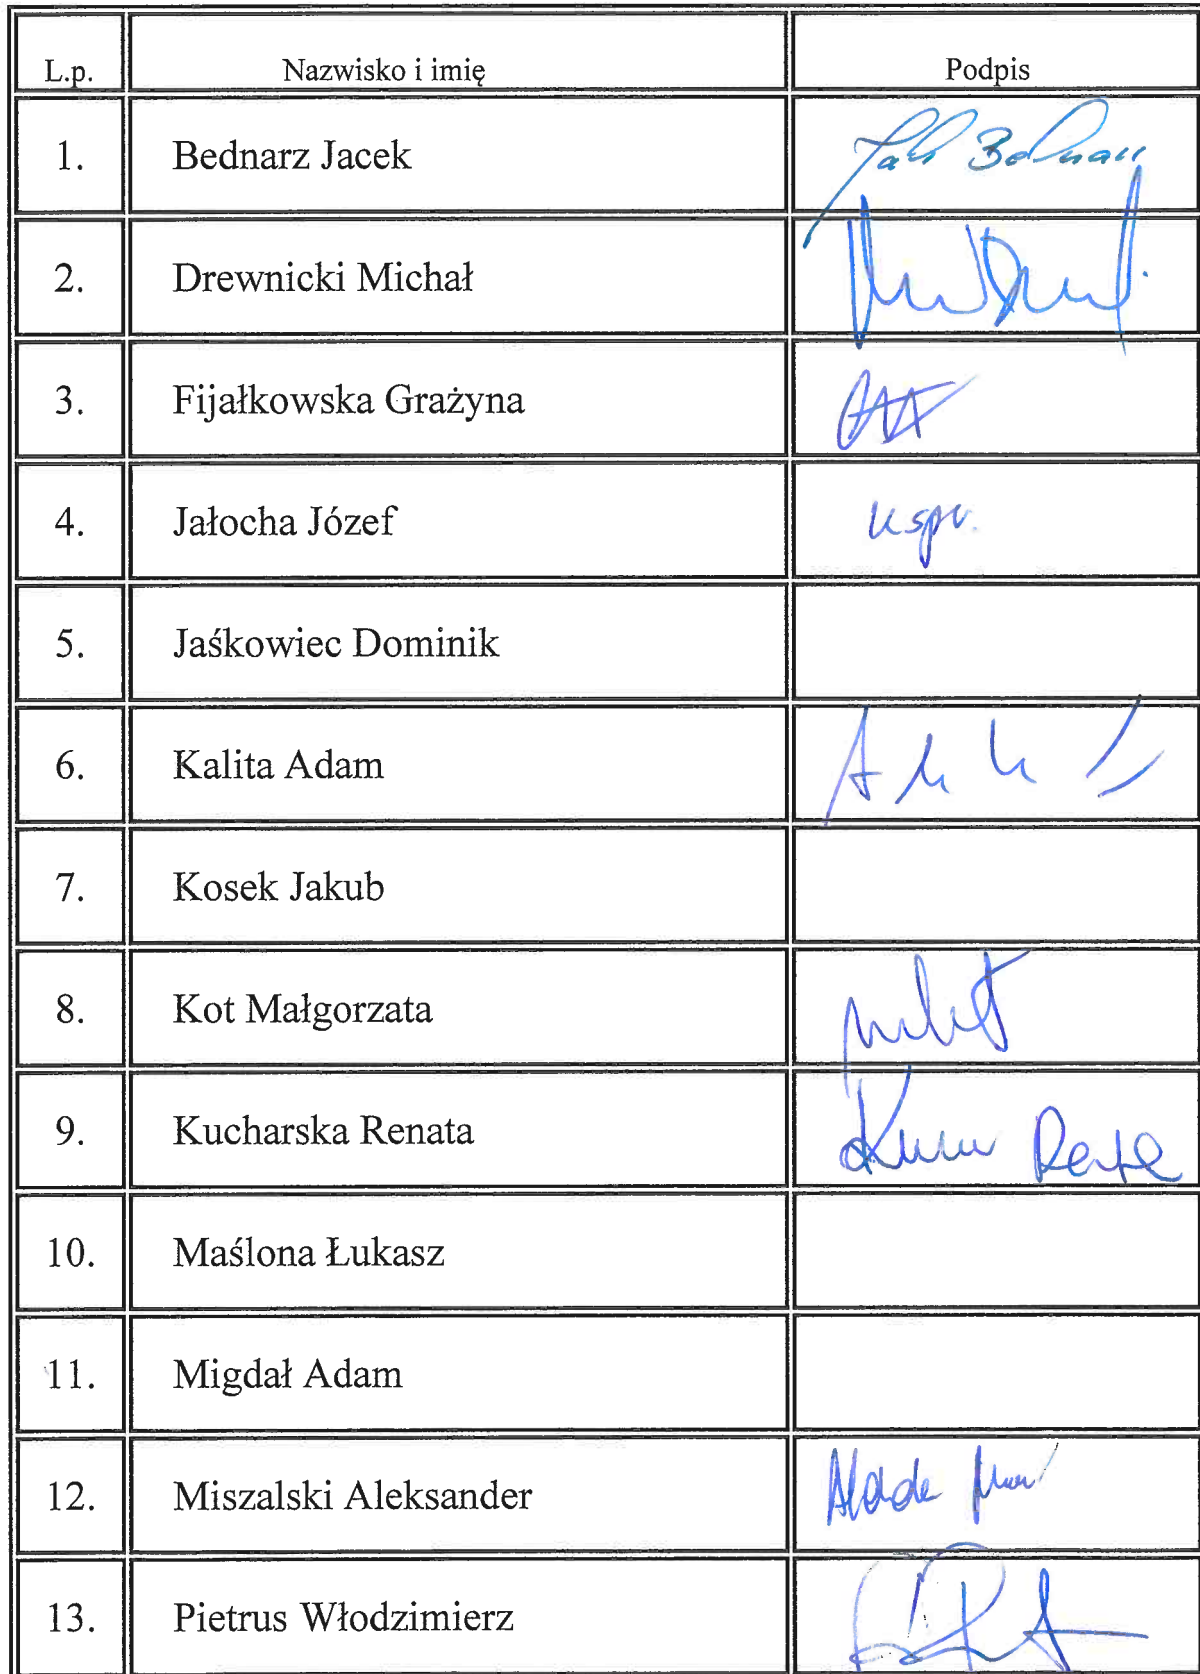 L.p. Nazwisko i imię Podpis
1. Bednarz Jacek
2. Drewnicki Michał
3. Fijałkowska Grażyna
4. Jałocha Józef uspr.
5. Jaśkowiec Dominik
6. Kalita Adam
7. Kosek Jakub
8. Kot Małgorzata
9. Kucharska Renata
10. Maślona Łukasz
11. Migdał Adam
12. Miszalski Aleksander
13. Pietrus Włodzimierz